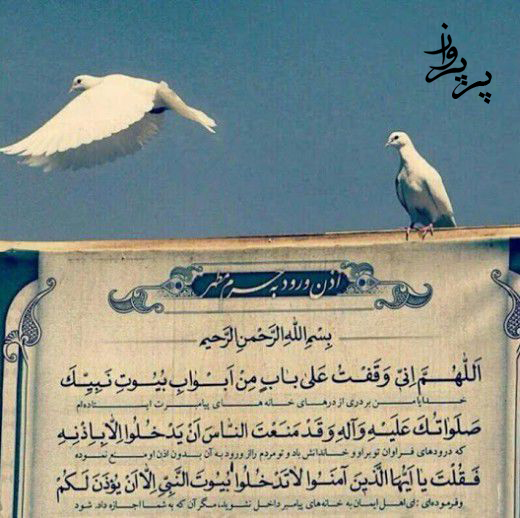 پر پرواز
اذن ورود به حرم مطهر
بِسْمِ اللهِ الرَّحْمنِ الرَّحیم
اَللّهُمَّ اِنّی وَقَفْتُ عَلی بابٍ مِنْ اَبْوابِ بُیُوتِ نَبِیِّکَ
خدایا من بر دری از درهای خانه های پیامبرت ایستاده‌ام
صَلَواتُکَ عَلَیْهِ وَآلِهِ وَقَدْ مَنَعْتَ النّاسَ اَنْ یَدْخُلُوا اِلاّ بِاِذْنِهِ
که درودهای فراوان تو بر او و خاندانش باد و تو مردم را از ورود به آن بدون اذن او منع نموده
فَقُلْتَ یا اَیُّهَا الَّذینَ آمَنُوا لاتَدْخُلُوا بُیُوتَ النَّبِیِّ اِلاّ اَنْ یُؤْذَنَ لَکُمْ
و فرموده‌ای : ای اهل ایمان به خانه‌های پیامبر داخل نشوید، مگر آن که به شما اجازه داده شود